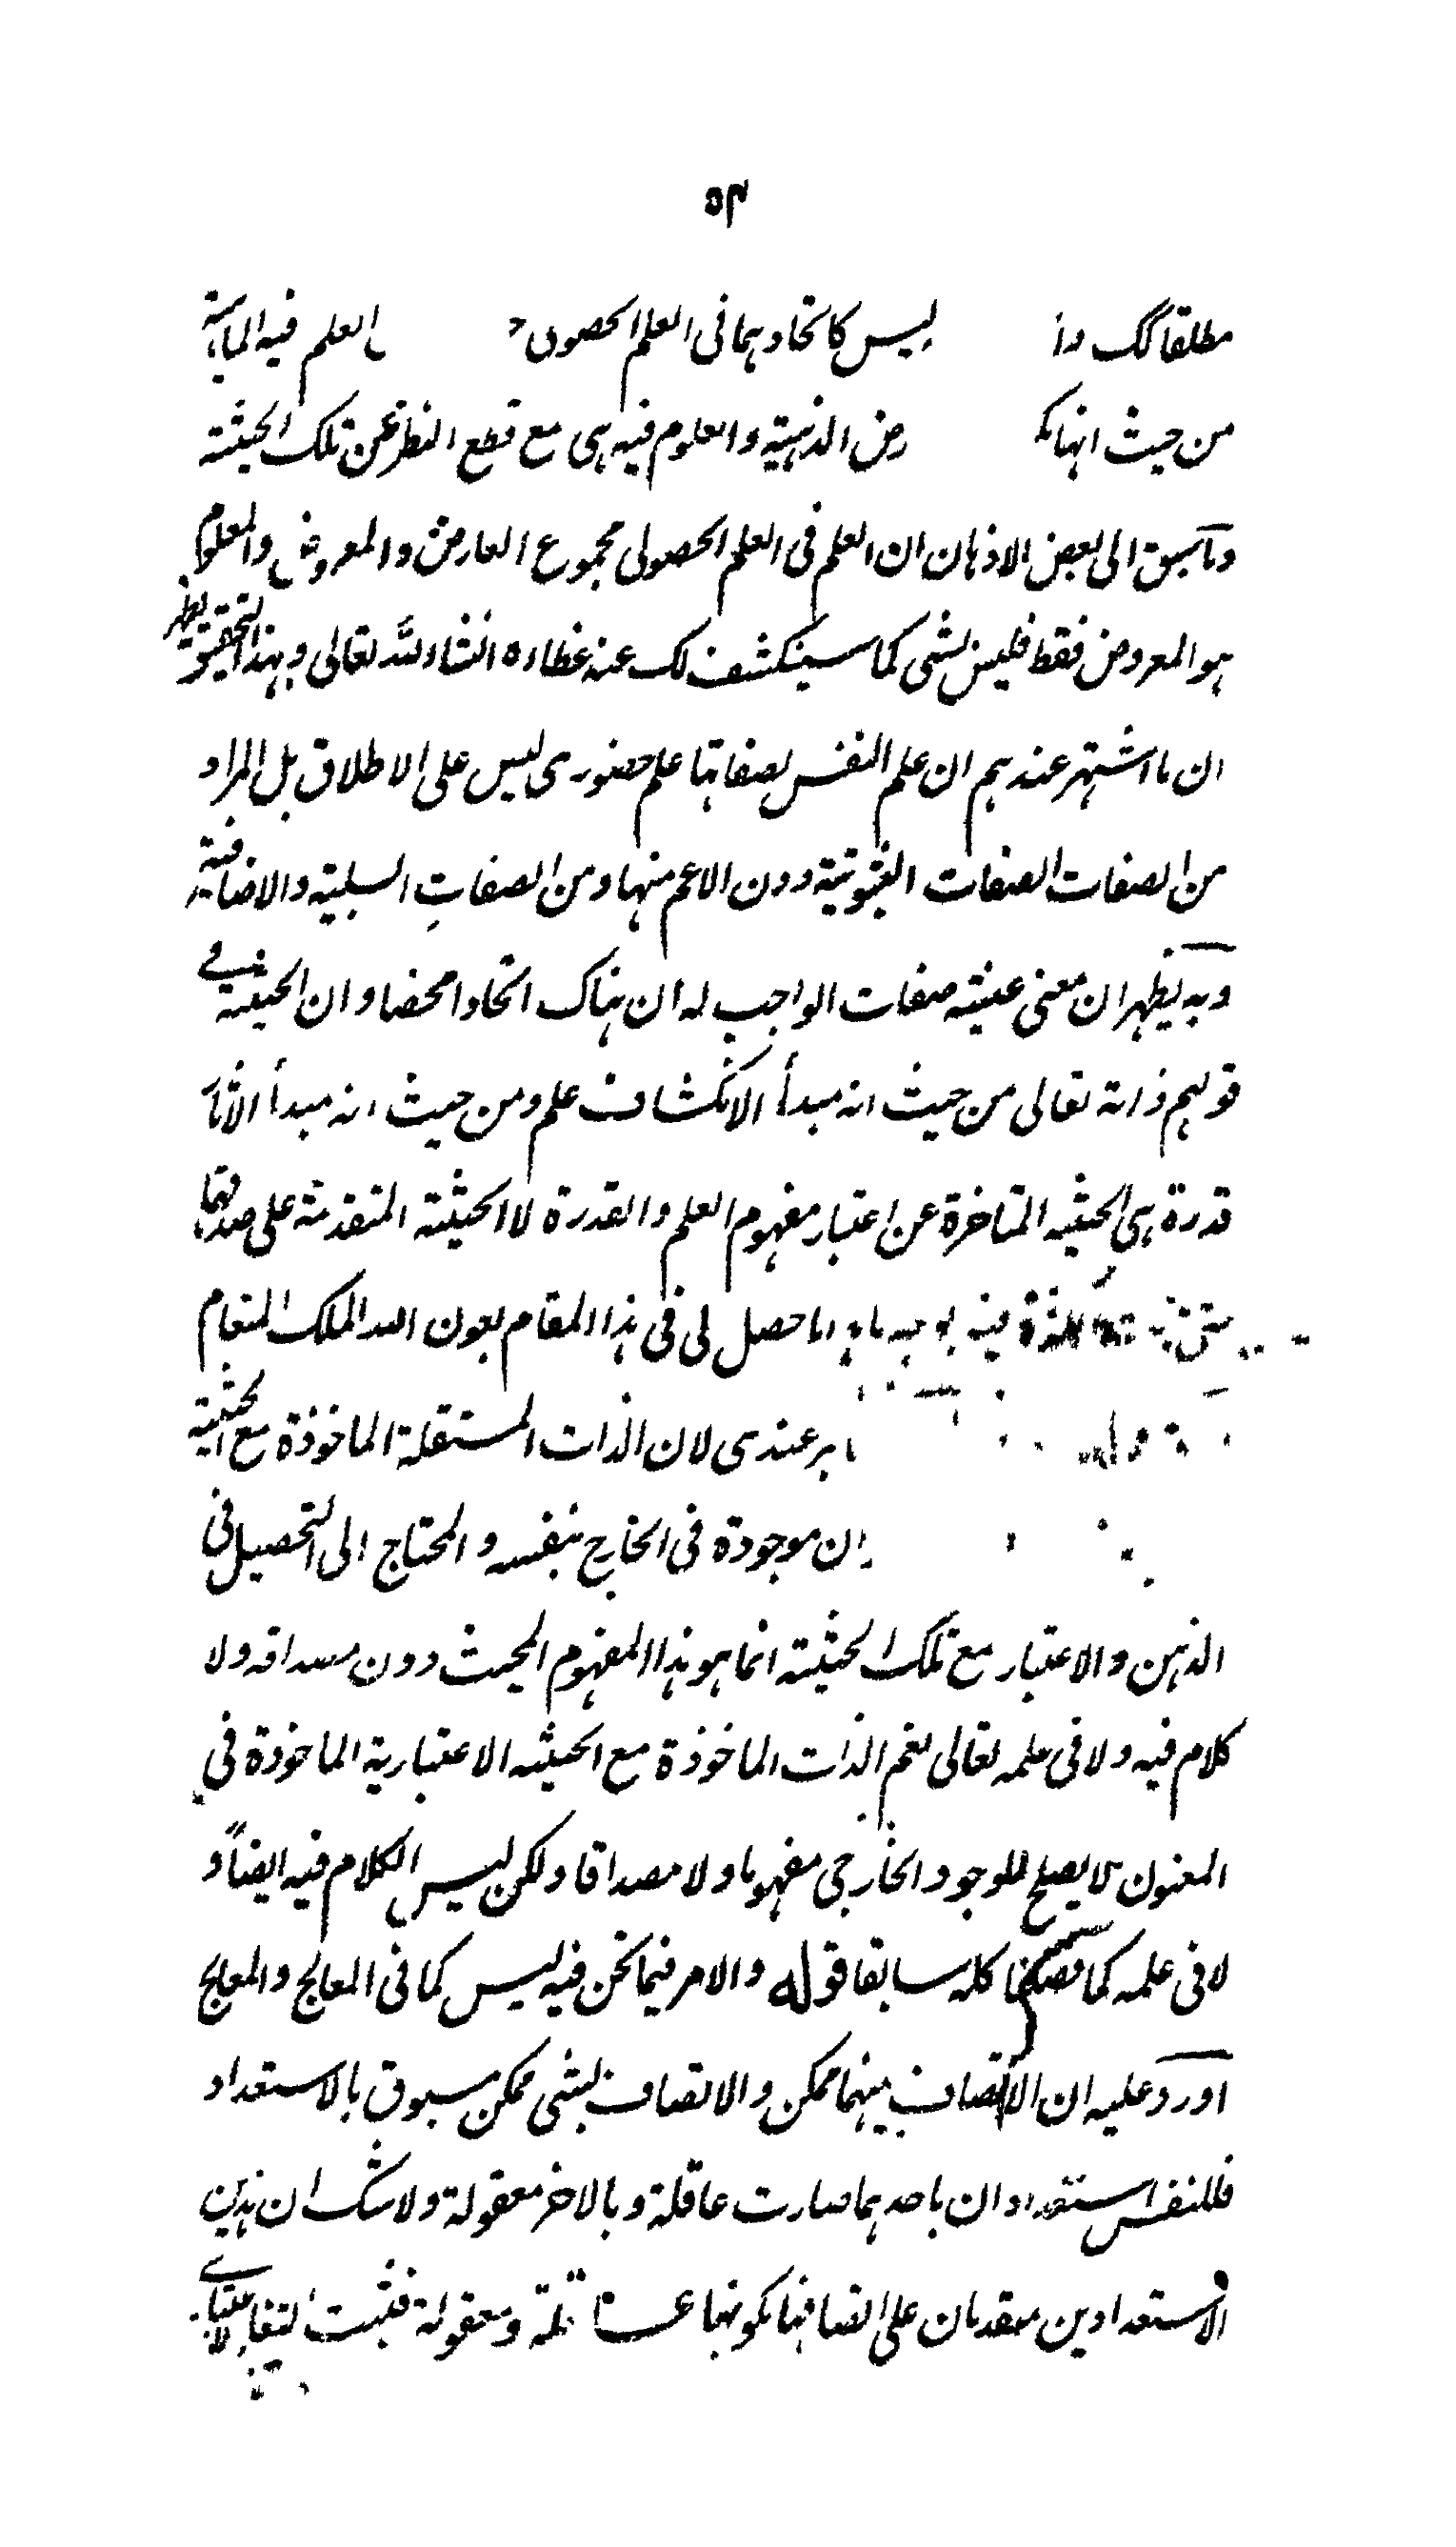 ٥٢
مطلقا كك وا ليس كاتحادهما فى العلم الحصولى العلم فيه الماهية
من حيث انها رض الذهنية والمعلوم فيه هى مع قطع النظر عن تلك الحيثية
وما سبق الى بعض الاذهان ان العلم فى العلم الحصولى مجموع العارض والمعروض والمعلوم
هو المعروض فقط فليس بشى كما سينكشف لك عنه غطاءه انشاء الله تعالى وبهذا التحقيق يظهر
ان ما اشتهر عندهم ان علم النفس بصفاتها علم حضورى ليس على الاطلاق بل المراد
من الصفات الصفات الثبوتية دون الاعم منها ومن الصفات السلبية والاضافية
وبه يظهر ان معنى عينية صفات الواجب له ان هناك اتحادا محضا وان الحيثية فى
قولهم ذاته تعالى من حيث انه مبدأ الانكشاف علم ومن حيث انه مبدأ الآثار
قدرة هى الحيثية المتاخرة عن اعتبار مفهوم العلم والقدرة لا الحيثية المتقدمة على صدقهما
ما حصل لى فى هذا المقام بعون الله الملك المنعام
عندى لان الذات المستقلة الماخوذة مع الحيثية
موجودة فى الخارج بنفسه والمحتاج الى التحصيل فى
الذهن والاعتبار مع تلك الحيثية انما هو هذا المفهوم المحيث دون مصداقه ولا
كلام فيه ولا فى علمه تعالى نعم الذات الماخوذة مع الحيثية الاعتبارية الماخوذة فى
المعنون لا يصلح للوجود الخارجى مفهوما ولا مصداقا ولكن ليس الكلام فيه ايضاً و
لا فى علمه كما فصلنا كله سابقا قوله والامر فيما نحن فيه ليس كما فى المعالج والمعالج
اورد عليه ان الاتصاف بينهما ممكن والاتصاف بشى ممكن مسبوق بالاستعداد
فللنفس استعدادان باحدهما صارت عاقلة وبالاخر معقولة ولا شك ان هذين
الاستعدادين مقدمان على اتصافها بكونها عاقلة ومعقولة فثبت التغاير الاعتبارى